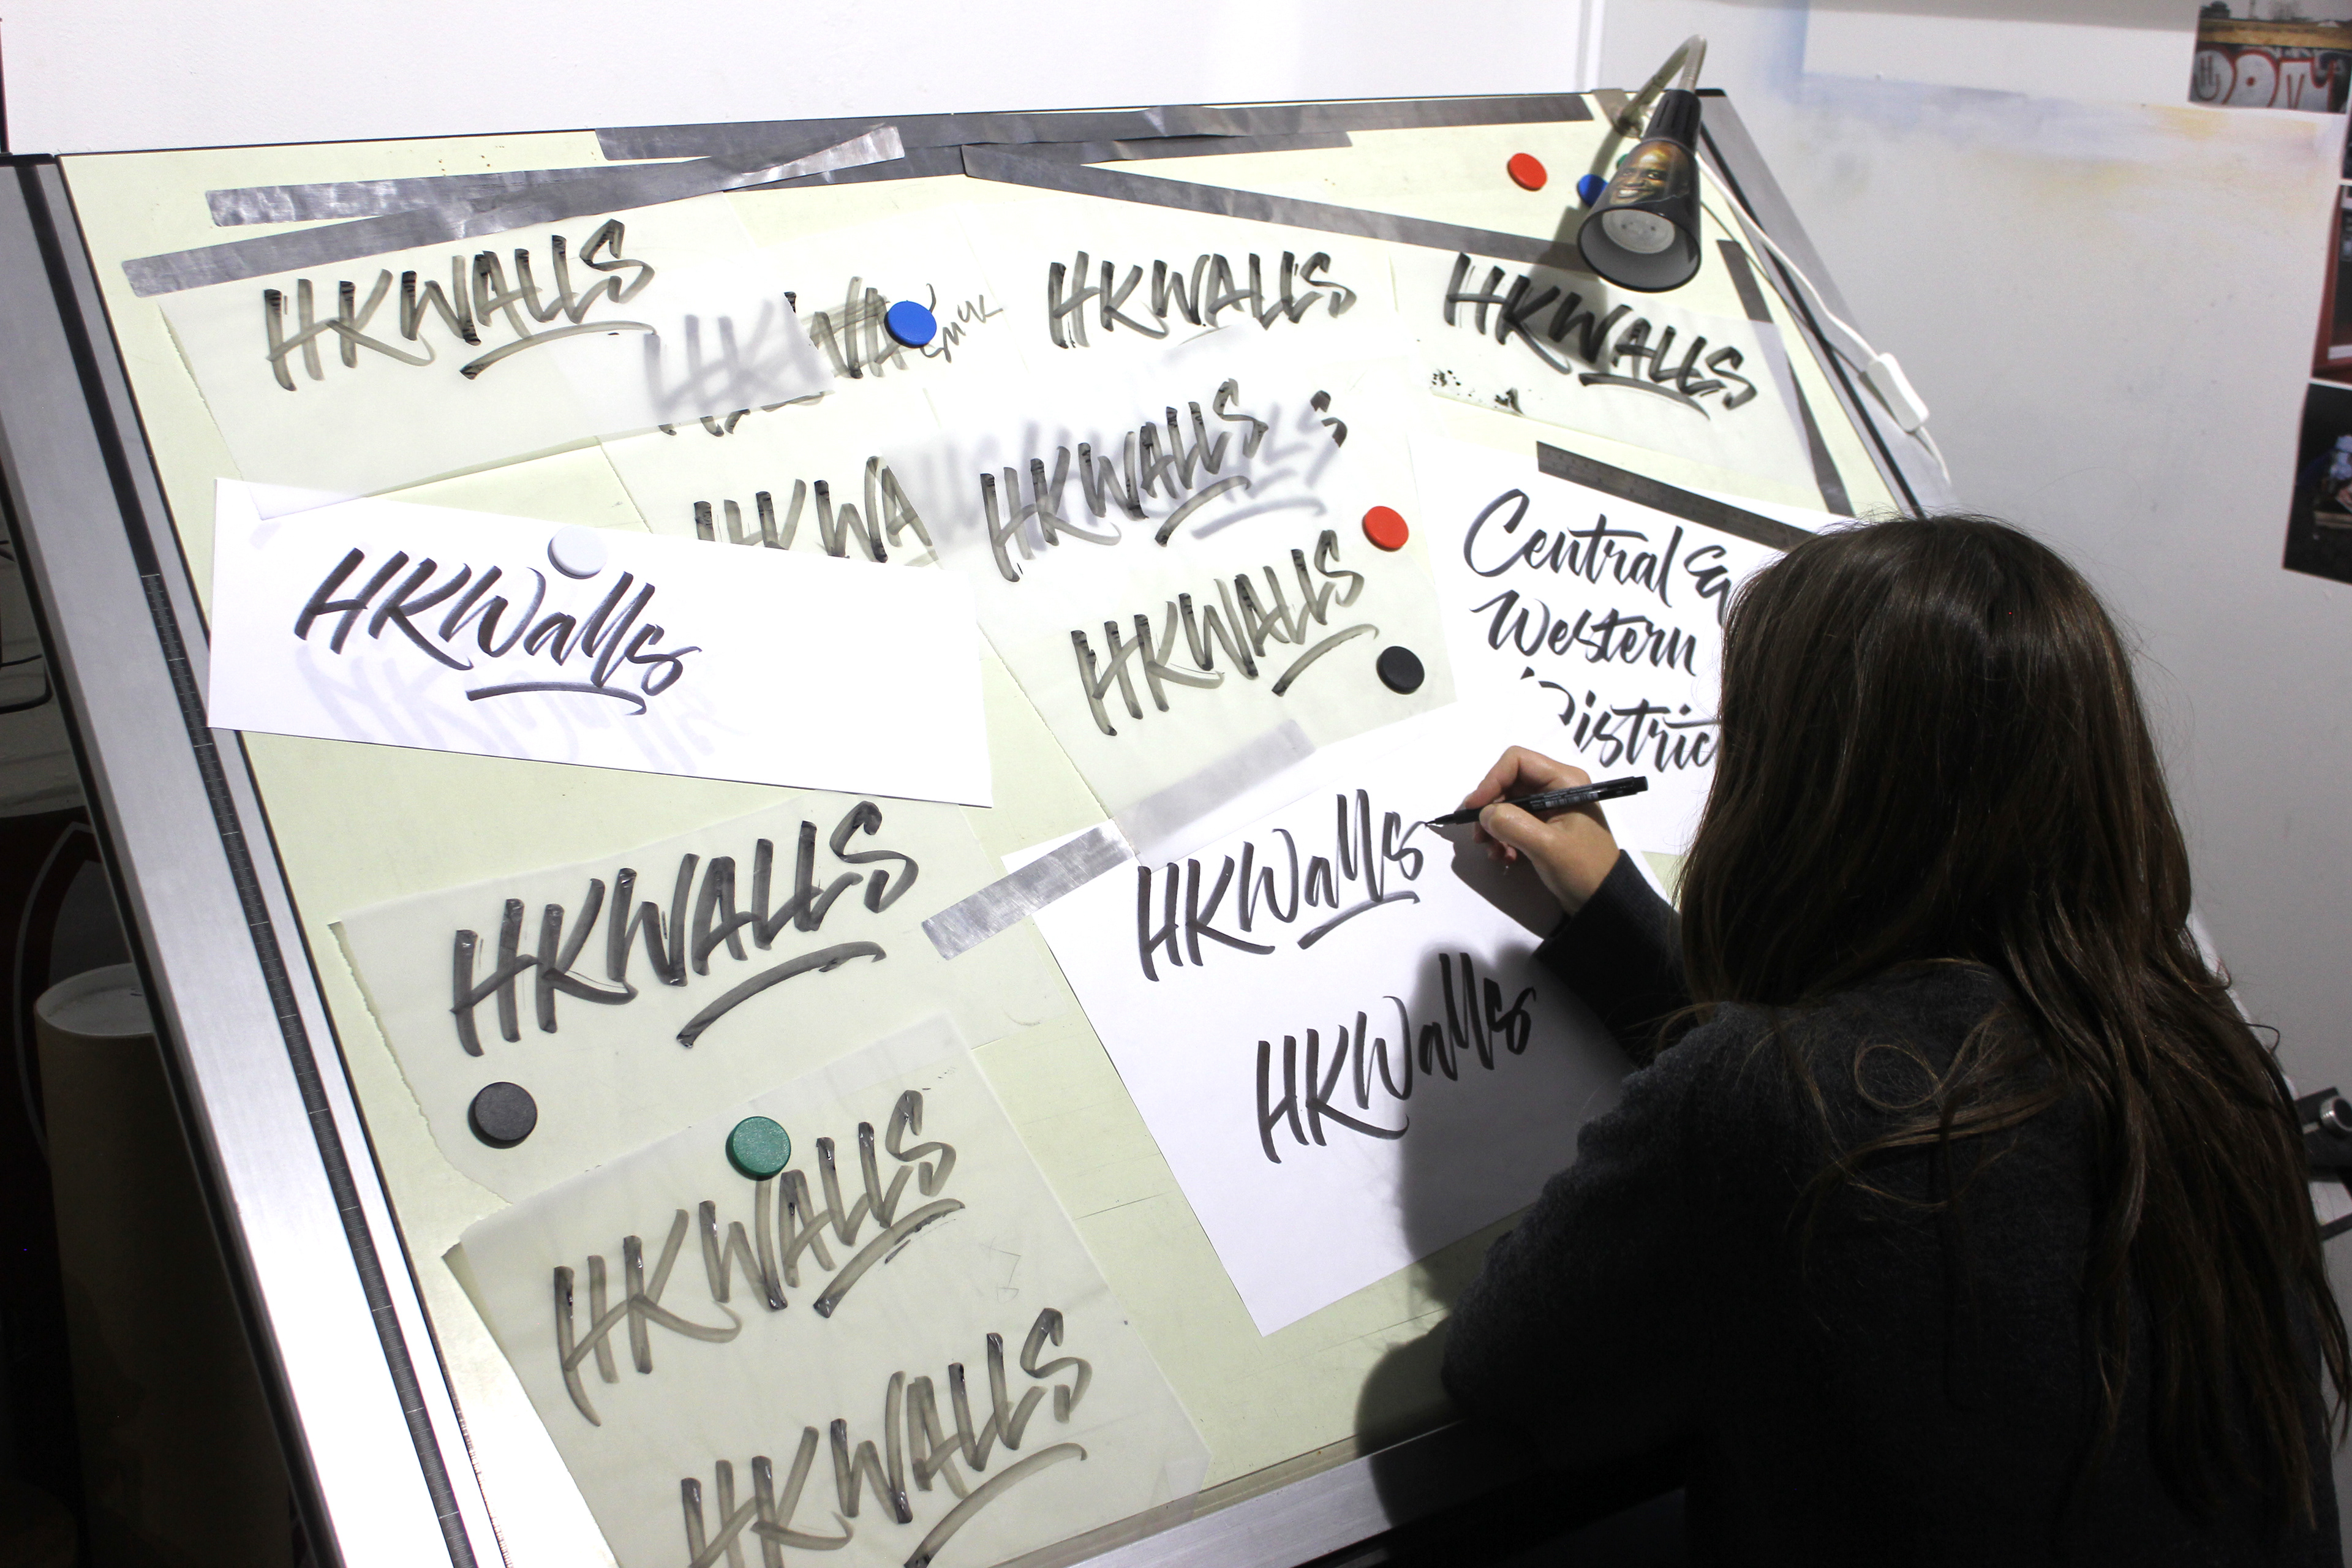 HKWALLS
HKWA
HKWALLS
HKWALLS
HKWA
HKWALLS
HKWalls
HKWALLS
Central
Western
District
HKWALLS
HKWalls
HKWalls
HKWALLS
HKWALLS